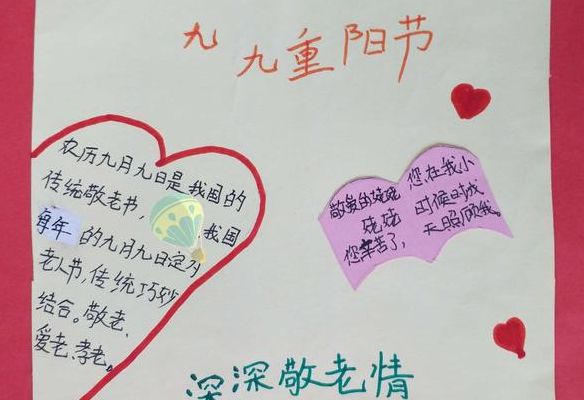 九九重阳节
农历九月九日是我国的
传统敬老节，我国
每年的九月九日定为
老人节，传统巧妙
结合。敬老、
爱老、孝老。
敬爱的姥姥
姥姥
您辛苦了，
您，在我小
时候时成
天照顾我。
深深敬老情